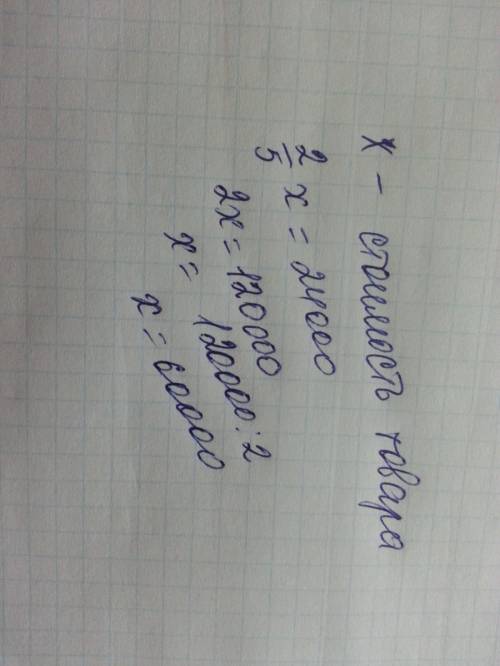 x - стоимость товара
2/5 x = 24000
2x = 120000
x = 120000:2
x = 60000